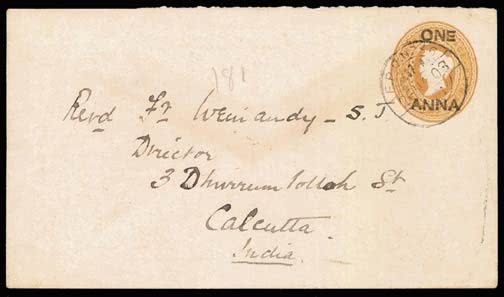 ONE
181
Revd Fr Weinandy - S.J
ANNA
Director
3 Dhurrumtollah St
Calcutta.
India.